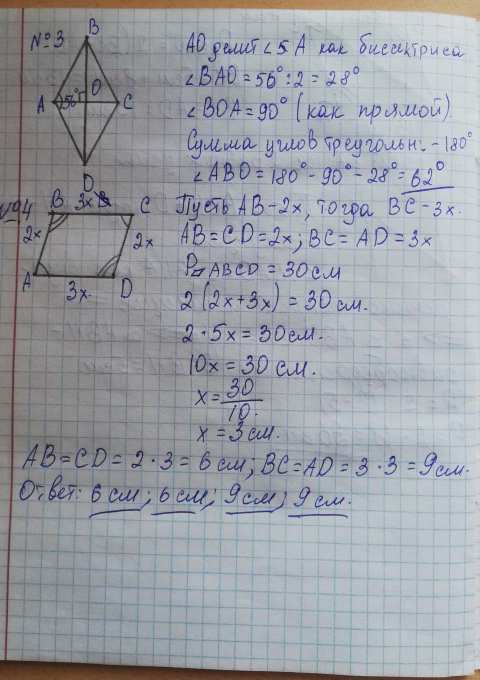 №3
B
A 56° O C
D
АО делит ∠5 А как биссектриса
∠BAO = 56° : 2 = 28°
∠BOA = 90° (как прямой).
Сумма углов треугольн. - 180°
∠ABO = 180° - 90° - 28° = 62°
№4
B 3x C
2x 2x
A 3x D
Пусть AB - 2x, тогда BC - 3x.
AB = CD = 2x; BC = AD = 3x
P▱ABCD = 30 см
2 (2x + 3x) = 30 см.
2 · 5x = 30 см.
10x = 30 см.
x = 30/10.
x = 3 см.
AB = CD = 2 · 3 = 6 см; BC = AD = 3 · 3 = 9 см.
Ответ: 6 см; 6 см; 9 см; 9 см.